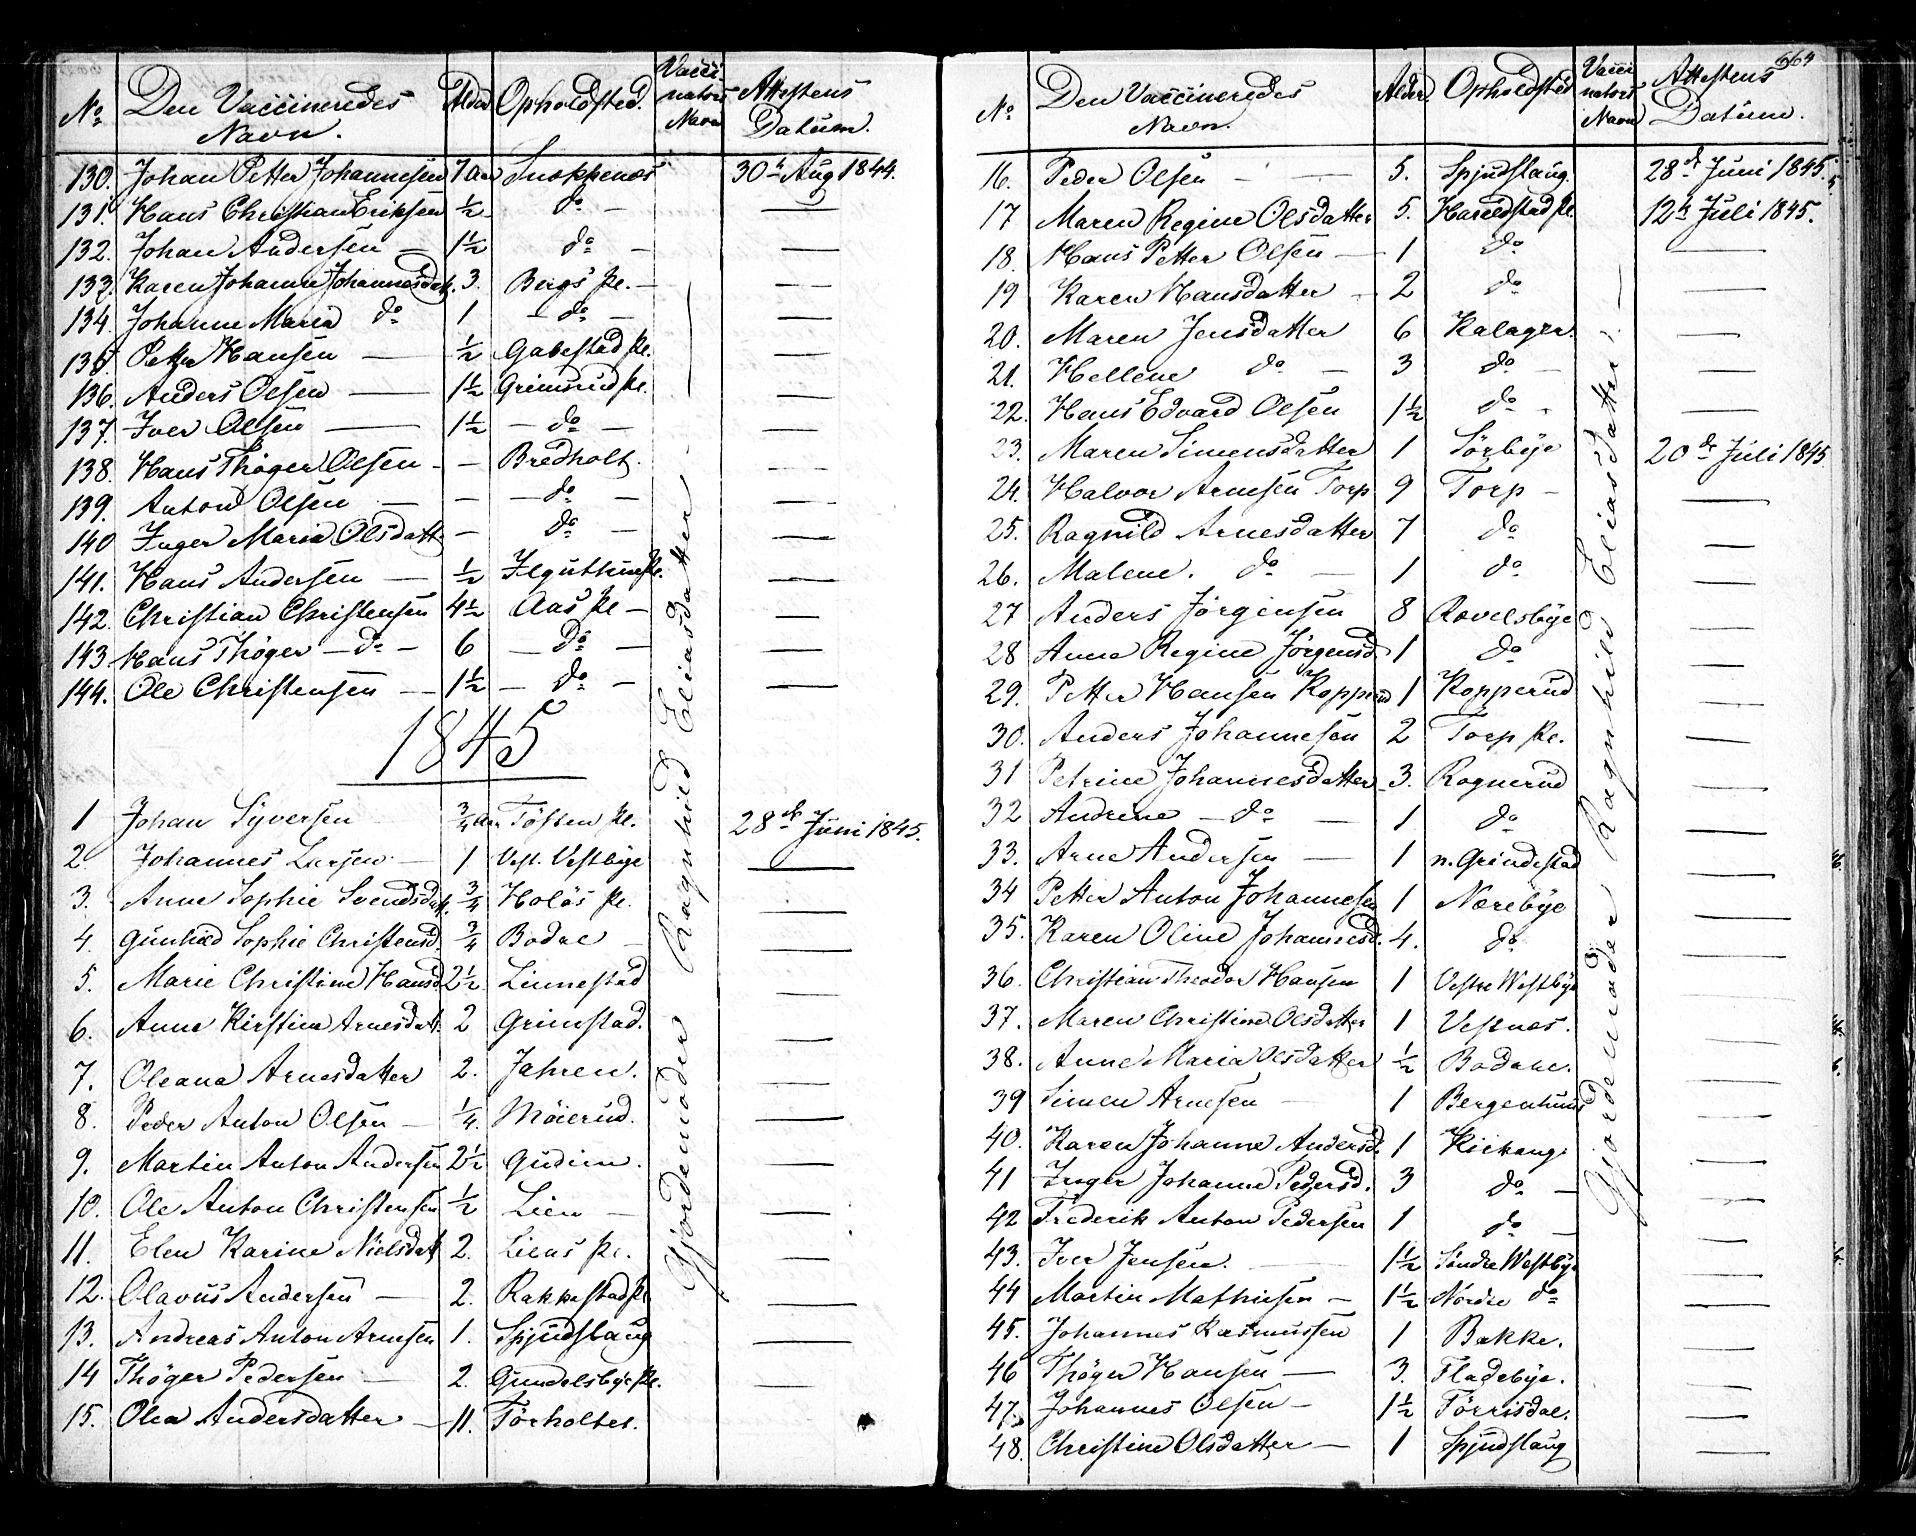 664
No Den Vaccineredes Navn. Alder Opholdsted. Vaccinators Navn Attestens Datum.
130. Johan Petter Johannesen 7 Aar Snoppenæs 30te Aug 1844.
131. Hans Christian Eriksen ½ do — —
132. Johan Andersen — 1½ do — —
133. Karen Johanne Johannesdatt. 3. Bergs Pe. — —
134. Johanne Maria do 1 — do — —
135. Petter Hansen — ½ Gabestad Pe. —
136. Anders Olsen — 1½ Grimsrud Pe. —
137. Iver Olsen — 1½ — do — —
138. Hans Thøger Olsen - — Bredholt. —
139. Anton Olsen — — — do — —
140 Inger Maria Olsdatt — do — —
141. Hans Andersen — ½ —
142. Christian Christensen 4½ Aas Pe — —
143 Hans Thøger — do — 6 — do — —
144. Ole Christensen — 1½ — do — —
1845
1 Johan Syversen ¾ Aar Tösten Pe. 28de Juni 1845.
2. Johannes Larsen — 1 Vest. Vestbye —
3. Anne Sophie Svendsdatt. ¾ Holös Pe. —
4. Gunhild Sophie Christensd. ¾ Bodal — —
5. Marie Christine Hansd. 2½ Linnestad —
6. Anne Kirstine Arnesdatt. 2 Grimstad. —
7. Oleana Arnesdatter 2. Jahren. —
8. Peder Anton Olsen — ¼. Möierud. —
9. Martin Anton Andersen 2½ Gudim. —
10. Ole Anton Christensen ½ Lien — —
11. Elen Karine Nielsdatt 2. Liens Pe. —
12. Olavus Andersen — 2. Rakkestad Pe —
13. Andreas Anton Arnesen 1. Spjudslaug —
14 Thöger Pedersen — 2. Gundelsbye Pe. —
15. Olea Andersdatter — 11. Törholtet.
Gjordemoder Ragnhild Eliasdatter —
No Den Vaccineredes Navn. Alder. Opholdsted Vaccinators Navn Attestens Datum.
16. Peder Olsen — — 5. Spjudslaug. 28de Juni 1845.
17 Maren Regine Olsdatter 5. Hareldstad Pe. 12te Juli 1845.
18. Hans Petter Olsen — 1 do —
19 Karen Hansdatter — 2 do —
20. Maren Jensdatter 6 Kalager. —
21. Hellene do — 3 do — —
22. Hans Edvard Olsen 1½ do - —
23. Maren Simensdatter 1 Sörbye 20de Juli 1845
24. Halvor Arnesen Torp 9 Torp — —
25. Ragnild Arnesdatter 7 do —
26. Malene. do — 1 do —
27 Anders Jörgensen 8 Ravelsbye —
28 Anne Regine Jörgensd. 1 do —
29. Petter Hansen Kopperud 1 Kopperud —
30. Anders Johannesen 2 Torp Pe. —
31 Petrine Johannesdatter 3. Rognerud —
32 Andrine — do — 1 do —
33. Arne Andersen — 1 n. Grindestad —
34 Petter Anton Johannesen 1 Nærebye —
35. Karen Oline Johannesd. 4. do —
36. Christian Theodor Hansen 1 Vestre Westbye —
37. Maren Christine Olsdatter 1 Vestnæs. —
38. Anne Maria Olsdatter ½ Bodahl. —
39 Simen Arnesen — 1 Bergenhuus —
40. Karen Johanne Andersd. 1 Kirkeng. —
41 Inger Johanne Pedersd. 3 do — —
42 Frederik Anton Pedersen 1 do — —
43. Iver Jensen. — 1½ Söndre Westbye —
44 Martin Mathiesen — 1½ Nordre do —
45. Johannes Rasmussen 1 Bakke. —
46 Thöger Hansen — 3. Fladebye. —
47. Johannes Olsen — 1½ Törrisdal. —
48. Christine Olsdatter — 1 Spjudslaug —
Gjordemoder Ragnhild Eliasdatter. —